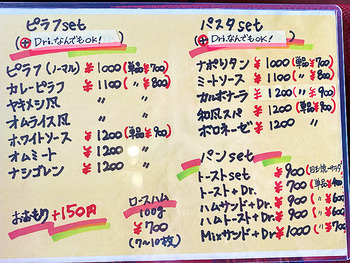 ピラフset
(⊕Dri.なんでもOK!)
ピラフ(ノーマル) ¥1000(単品¥700)
カレーピラフ ¥1100(〃¥800)
ヤキメシ風 〃 〃
オムライス風 〃 〃
ホワイトソース ¥1200(単品¥900)
オムミート ¥1200 〃
ナシゴレン ¥1200 〃
おおもり+150円
ロースハム
100g
¥700
(7~10枚)
パスタset
(⊕Dri.なんでもOK!)
ナポリタン ¥1000(単品¥700)
ミートソース ¥1100(〃¥800)
カルボナーラ ¥1200(〃¥900)
和風スパ ¥1200(単品¥900)
ボロネーゼ ¥1200 〃
パンset
トーストset ¥900
トースト+Dr. ¥700(単品¥400)
ハムサンド+Dr. ¥900(〃¥600)
ハムトースト+Dr. ¥900(〃¥600)
Mixサンド+Dr. ¥1000(〃¥700)